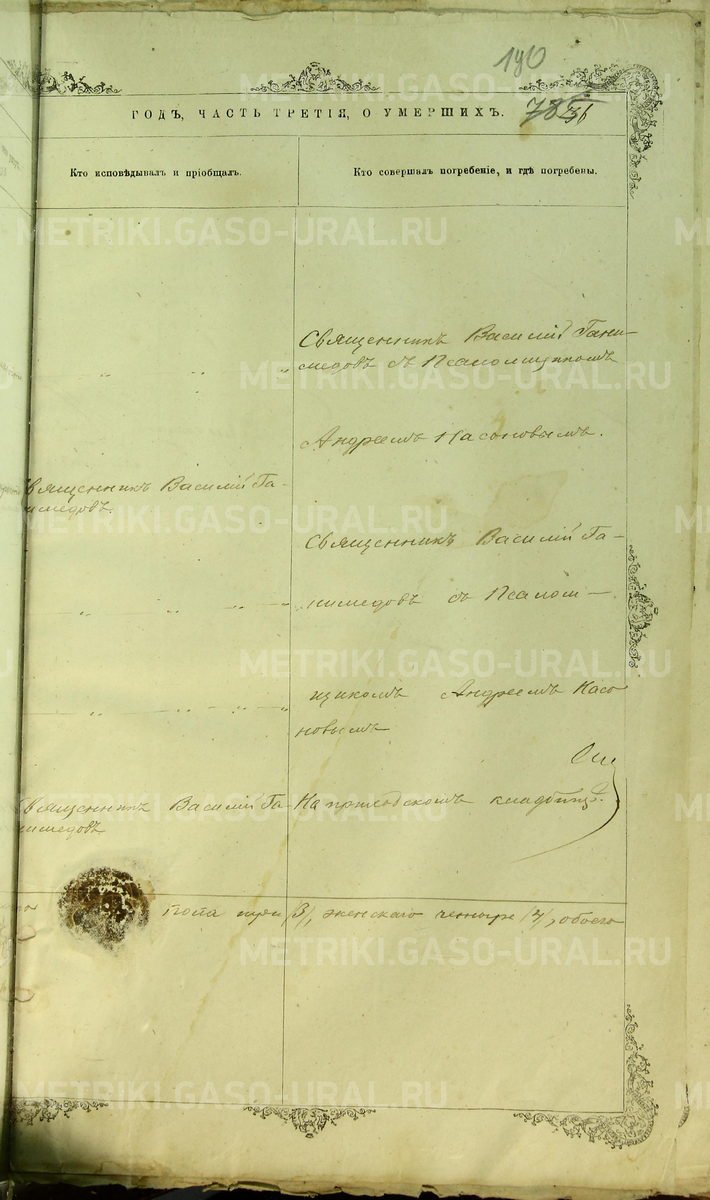 190
ГОДЪ, ЧАСТЬ ТРЕТІЯ, О УМЕРШИХЪ.
Кто исповѣдывалъ и пріобщалъ.
Кто совершалъ погребеніе, и гдѣ погребены.
Священникъ Василій Гани-
медовъ съ Псаломщикомъ
Андреемъ Насоновымъ.
вященникъ Василій Га-
имедовъ.
Священникъ Василій Га-
нимедовъ съ Псалом-
щикомъ Андреемъ Насо
новымъ
вященникъ Василій Га-
имедовъ
На приходскомъ кладбищѣ.
пола три /3/, женскаго четыре /4/, обоего
METRIKI.GASO-URAL.RU